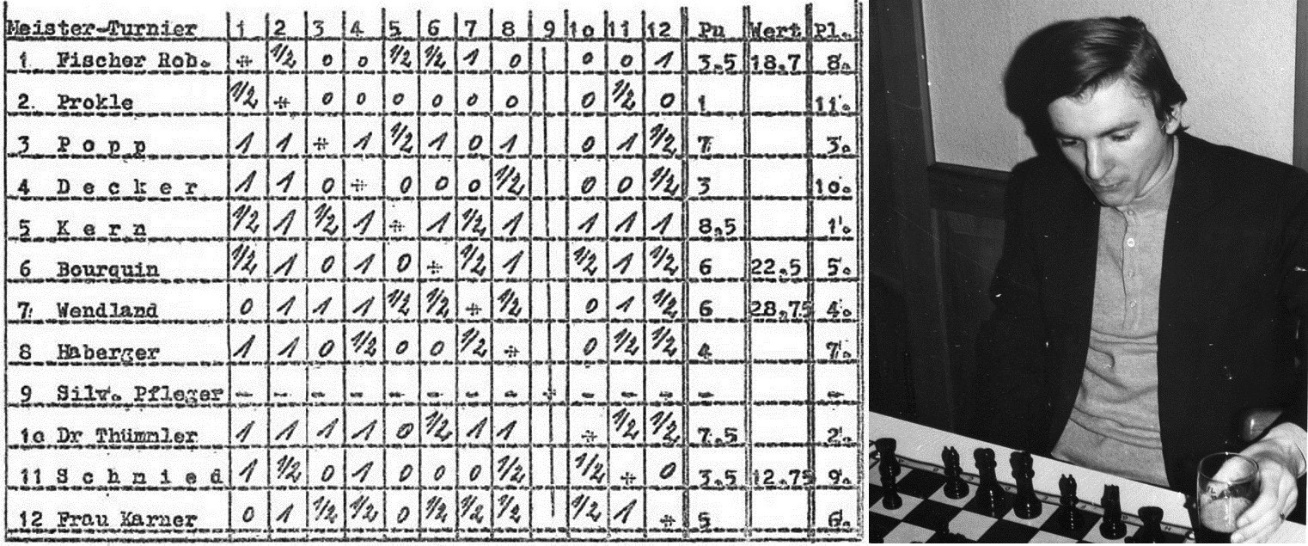 Meister-Turnier 1 2 3 4 5 6 7 8 9 10 11 12 Pu Wert Pl.
1 Fischer Rob. + 1/2 0 0 1/2 1/2 1 0 0 0 1 3.5 18.7 8.
2. Prokle 1/2 + 0 0 0 0 0 0 0 1/2 0 1 11.
3 P o p p 1 1 + 1 1/2 1 0 1 0 1 1/2 7 3.
4 D e c k e r 1 1 0 + 0 0 0 1/2 0 0 1/2 3 10.
5 K e r n 1/2 1 1/2 1 + 1 1/2 1 1 1 1 8,5 1.
6 Bourquin 1/2 1 0 1 0 + 1/2 1 1/2 1 1/2 6 22.5 5.
7 Wendland 0 1 1 1 1/2 1/2 + 1/2 0 1 1/2 6 28.75 4.
8 Haberger 1 1 0 1/2 0 0 1/2 + 0 1/2 1/2 4 7.
9 Silv. Pfleger - - - - - - - - + - - - - -
10 Dr Thümmler 1 1 1 1 0 1/2 1 1 + 1/2 1/2 7.5 2.
11 S c h m i e d 1 1/2 0 1 0 0 0 1/2 1/2 + 0 3.5 12.75 9.
12 Frau Karner 0 1 1/2 1/2 0 1/2 1/2 1/2 1/2 1 + 5 6.